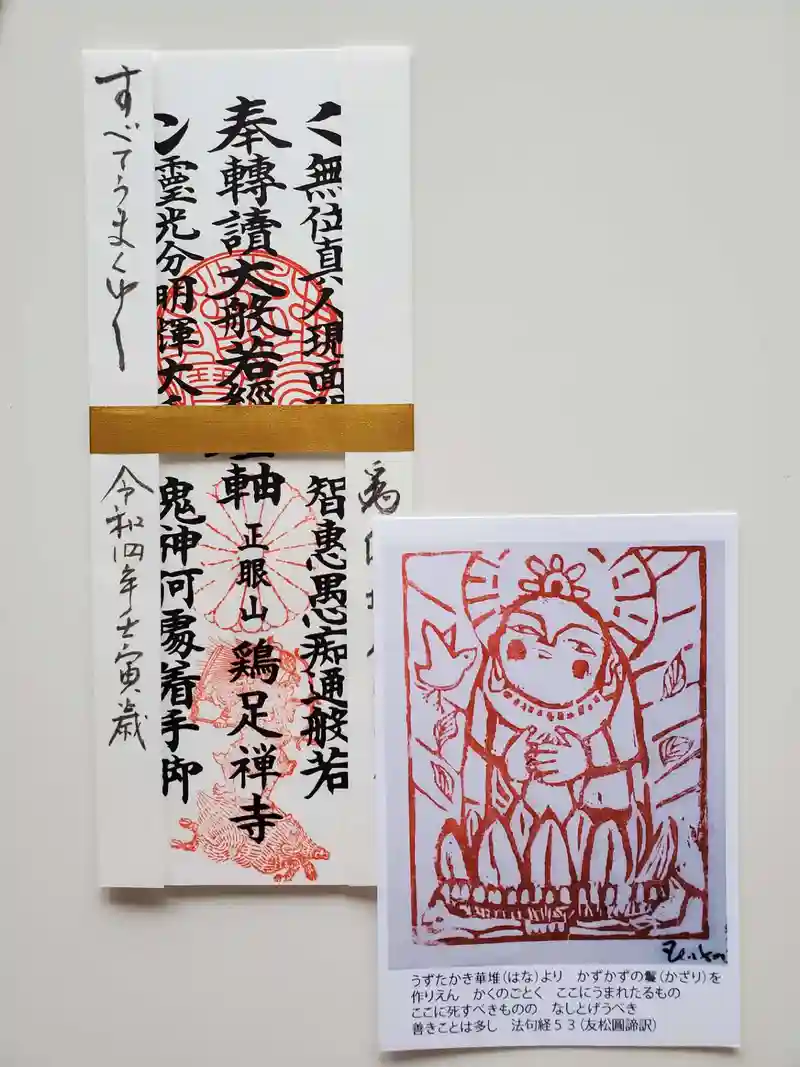 為
無位真人現面
智惠愚痴通般若
奉轉讀大般若經
軸
正眼山
鶏足禅寺
靈光分明輝大
鬼神何處着手
すべてうまくゆく
令和四年壬寅歳
うずたかき華堆(はな)より　かずかずの鬘(かざり)を
作りえん　かくのごとく　ここにうまれたるもの
ここに死すべきものの　なしとげうべき
善きことは多し　法句経５３(友松圓諦訳)